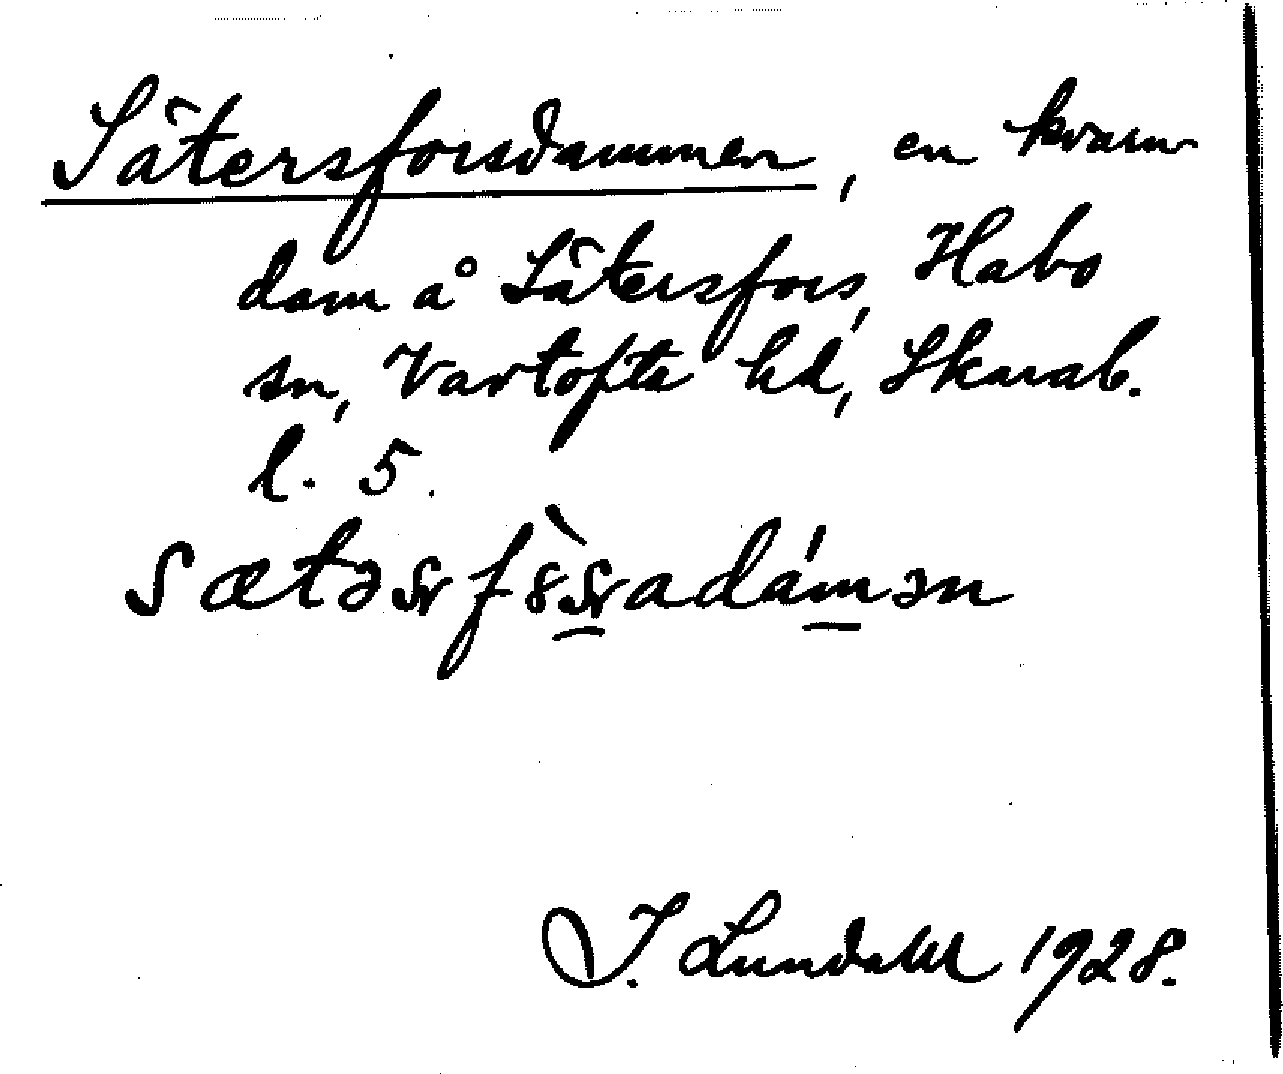 Sätersforsdammen, en kvarn
dam å Sätersfors, Habo
sn, Vartofta hd, Skarab.
l. 5.
I. Lundahl 1928.